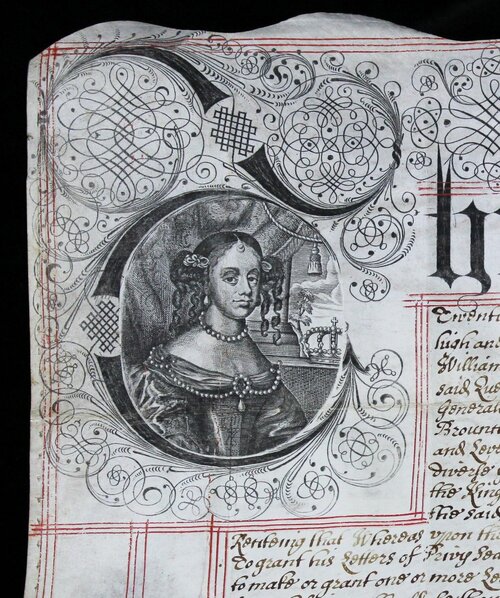 Th
Twenti
high and
William
said Qu
General
Brounk
and Seve
Diverse
the Kin
the said
Reciteing that Whereas upon the
To grant his Letters of Privy Sea
to make or grant one or more Le